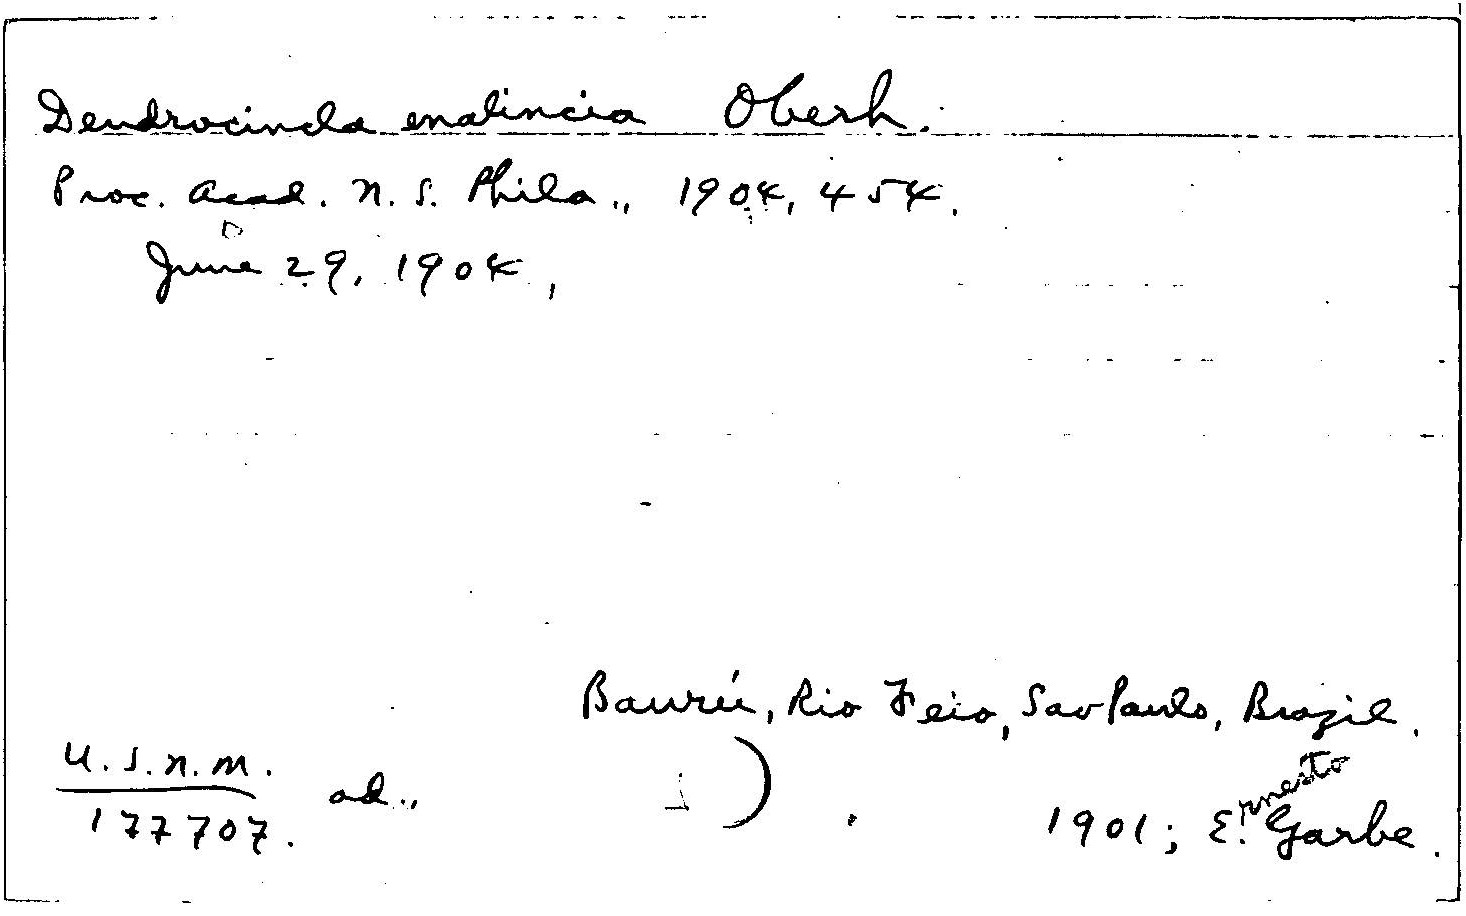 Dendrocincla enalincia Oberh.
Proc. Acad. N. S. Phila., 1904, 454.
June 29, 1904,
Baurú, Rio Feio, Sao Paulo, Brazil.
U.S.N.M. ad.,
177707. 1901; E. Garbe.
rnesto